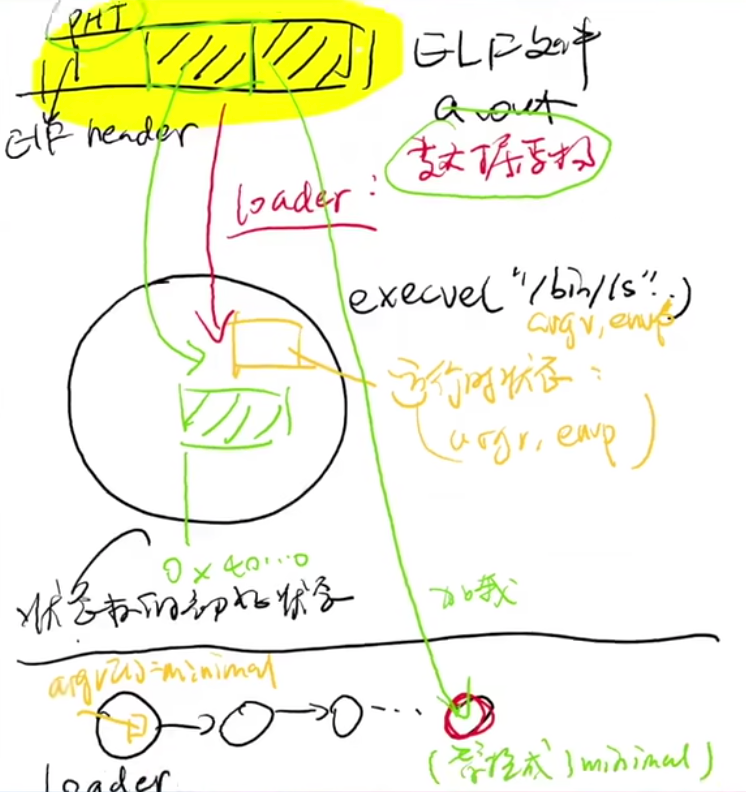 PHT
ELF文件
a.out
ELF header
数据结构
loader:
execve("/bin/ls"..)
argv, envp
运行时状态:
(argv, envp)
0x40...0
状态机的初始状态
加载
argv[1]=minimal
(替换成) minimal)
loader